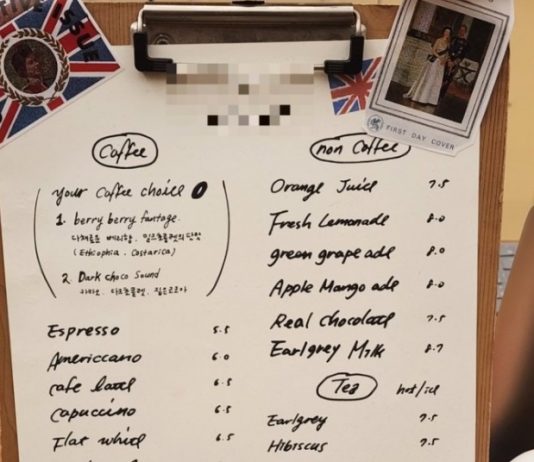 TIVE ISSUE
FIRST DAY COVER
Coffee
your Coffee choice
1. berry berry fantage.
다채로운 베리향, 밀크초콜렛의 단맛
(Ethiophia, Costarica)
2. Dark choco Sound
카카오, 다크초콜렛, 짙은
Espresso 5.5
Americcano 6.0
cafe latte 6.5
capuccino 6.5
Flat white 6.5
non Coffee
Orange Juice 7.5
Fresh Lemonade 8.0
green grape ade 8.0
Apple Mango ade 8.0
Real chocolate 7.5
Earlgrey Milk 8.7
Tea hot/ice
Earlgrey 7.5
Hibiscus 7.5